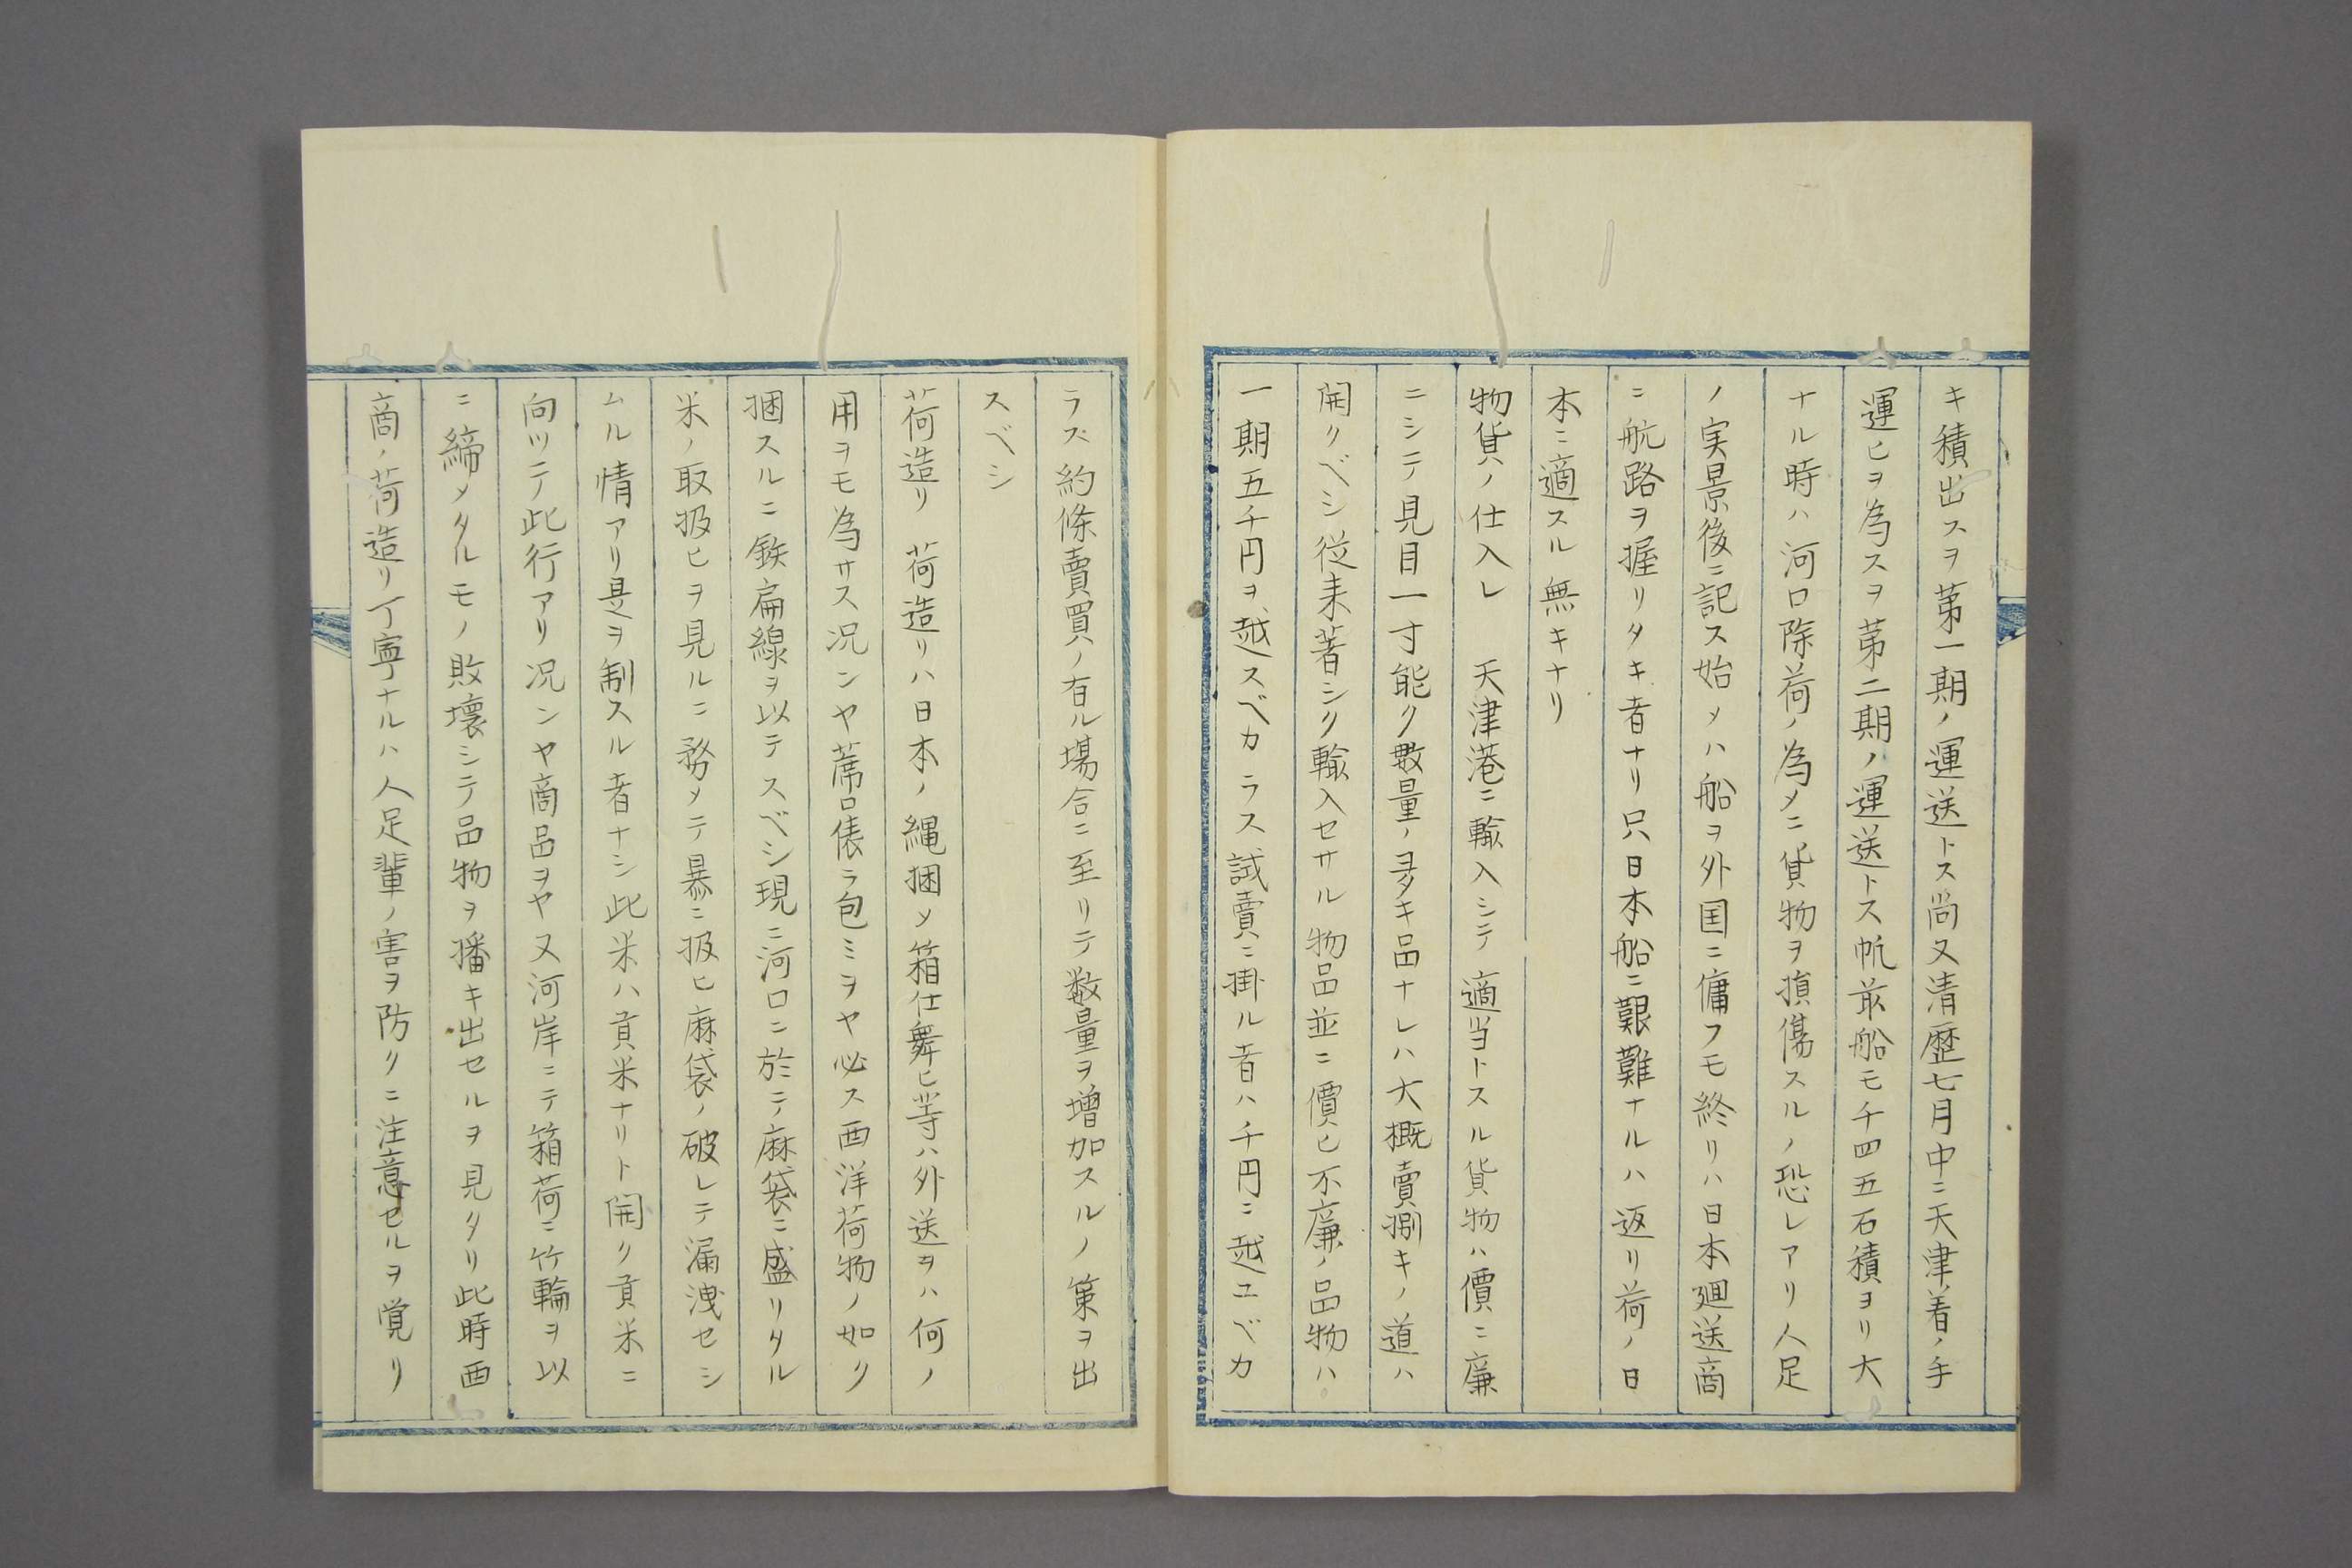 キ積出スヲ第一期ノ運送トス尚又清歴七月中ニ天津着ノ手
運ヒヲ為スヲ第二期ノ運送トス帆前船モ千四五石積ヨリ大
ナル時ハ河口除荷ノ為メニ貨物ヲ損傷スルノ恐レアリ人足
ノ実景後ニ記ス始メハ船ヲ外国ニ傭フモ終リハ日本廻送商
ニ航路ヲ握リタキ者ナリ只日本船ニ艱難ナルハ返リ荷ノ日
本ニ適スル無キナリ
物貨ノ仕入レ 天津港ニ輸入シテ適当トスル貨物ハ價ニ廉
ニシテ見目一寸能ク數量ノ多キ品ナレハ大概賣捌キノ道ハ
開クベシ従来著シク輸入セサル物品並ニ價ヒ不廉ノ品物ハ
一期五千円ヲ越スベカラス試賣ニ掛ル者ハ千円ニ越ユベカ
ラス約條賣買ノ有ル場合ニ至リテ数量ヲ増加スルノ策ヲ出
スベシ
荷造リ 荷造リハ日本ノ縄捆メ箱仕舞ヒ等ハ外送ヲハ何ノ
用ヲモ為サス况ンヤ蓆呂俵ラ包ミヲヤ必ス西洋荷物ノ如ク
捆スルニ鉄扁線ヲ以テスベシ現ニ河口ニ於テ麻袋ニ盛リタル
米ノ取扱ヒヲ見ルニ務メテ暴ニ扱ヒ麻袋ノ破レテ漏洩セシ
ムル情アリ是ヲ制スル者ナシ此米ハ貢米ナリト聞ク貢米ニ
向ツテ此行アリ况ンヤ商品ヲヤ又河岸ニテ箱荷ニ竹輪ヲ以
ニ締メタルモノ敗壊シテ品物ヲ播キ出セルヲ見タリ此時西
商ノ荷造リ丁寧ナルハ人足輩ノ害ヲ防クニ注意セルヲ覚リ